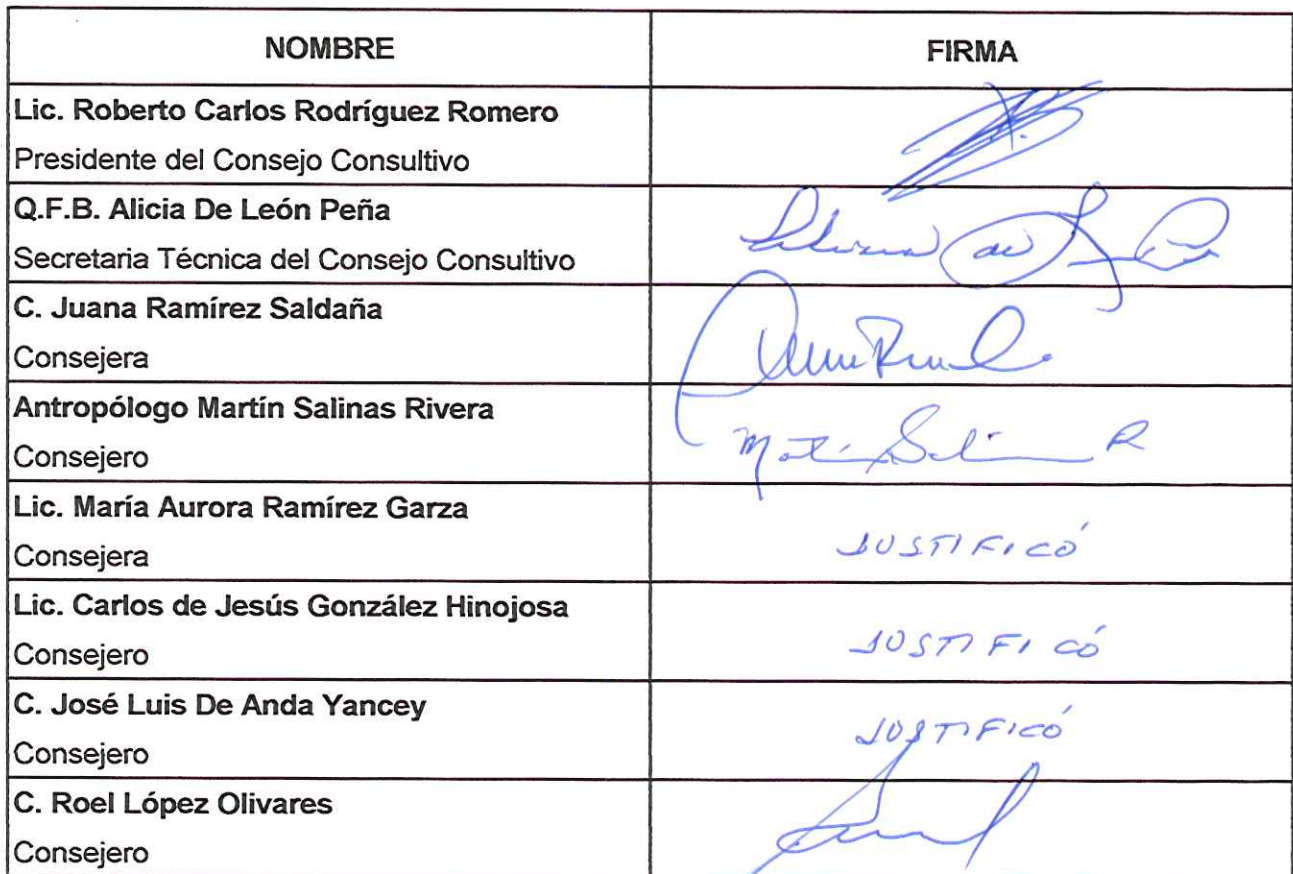 NOMBRE
FIRMA
Lic. Roberto Carlos Rodríguez Romero
Presidente del Consejo Consultivo
Q.F.B. Alicia De León Peña
Secretaria Técnica del Consejo Consultivo
C. Juana Ramírez Saldaña
Consejera
Antropólogo Martín Salinas Rivera
Consejero
Martín Salinas R
Lic. María Aurora Ramírez Garza
Consejera
JUSTIFICÓ
Lic. Carlos de Jesús González Hinojosa
Consejero
JUSTIFICÓ
C. José Luis De Anda Yancey
Consejero
JUSTIFICÓ
C. Roel López Olivares
Consejero